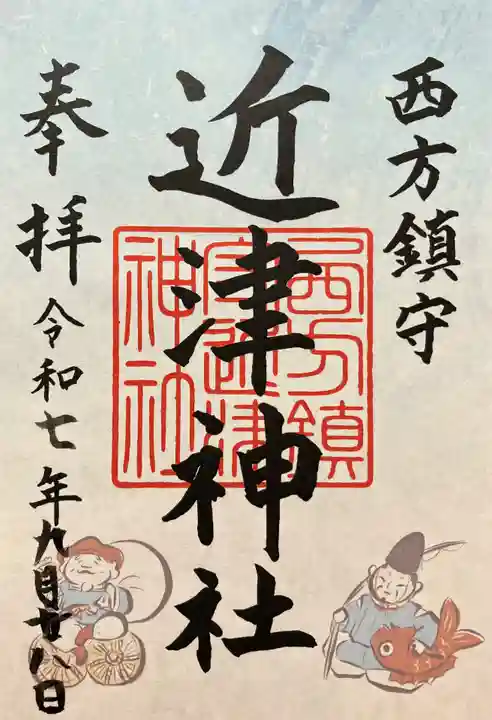 西方鎮守
近津神社
奉拝
令和七年九月廿八日
西方鎮
近津
神社